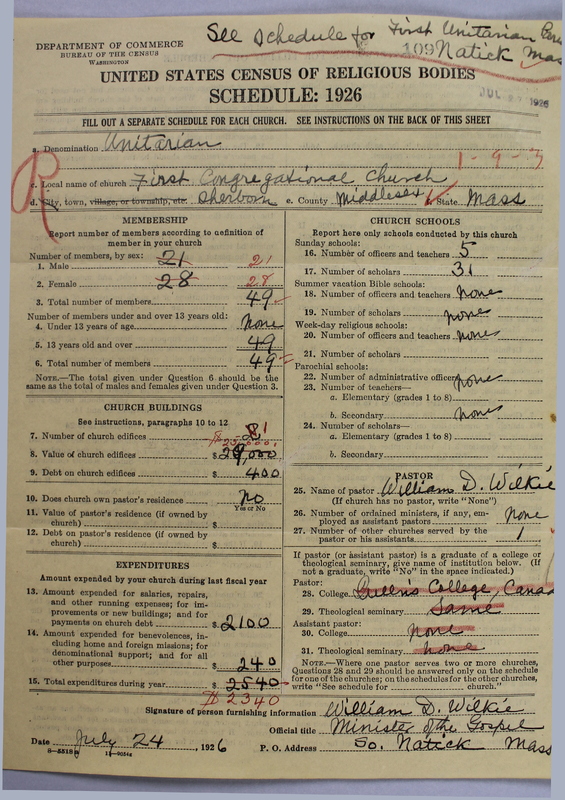 See Schedule for First Unitarian
109 Natick Mass
DEPARTMENT OF COMMERCE
BUREAU OF THE CENSUS
WASHINGTON
UNITED STATES CENSUS OF RELIGIOUS BODIES
SCHEDULE: 1926
JUL 1926
FILL OUT A SEPARATE SCHEDULE FOR EACH CHURCH. SEE INSTRUCTIONS ON THE BACK OF THIS SHEET
a. Denomination Unitarian
1-9-3
R
c. Local name of church First Congregational Church
d. City, town, village, or township, etc. Sherborn e. County Middlesex f. State Mass
MEMBERSHIP
Report number of members according to definition of member in your church
Number of members, by sex:
1. Male 21 21
2. Female 28 28
3. Total number of members 49
Number of members under and over 13 years old:
4. Under 13 years of age None
5. 13 years old and over 49
6. Total number of members 49
NOTE.—The total given under Question 6 should be the
same as the total of males and females given under Question 3.
CHURCH BUILDINGS
See instructions, paragraphs 10 to 12
7. Number of church edifices 1
$25,000
8. Value of church edifices $
9. Debt on church edifices $ 400
10. Does church own pastor's residence No
Yes or No
11. Value of pastor's residence (if owned by
church) $
12. Debt on pastor's residence (if owned by
church) $
EXPENDITURES
Amount expended by your church during last fiscal year
13. Amount expended for salaries, repairs,
and other running expenses; for im-
provements or new buildings; and for
payments on church debt $ 2100
14. Amount expended for benevolences, in-
cluding home and foreign missions; for
denominational support; and for all
other purposes $ 240
15. Total expenditures during year $ 2540
$ 2340
CHURCH SCHOOLS
Report here only schools conducted by this church
Sunday schools:
16. Number of officers and teachers 5
17. Number of scholars 31
Summer vacation Bible schools:
18. Number of officers and teachers none
19. Number of scholars none
Week-day religious schools:
20. Number of officers and teachers none
21. Number of scholars
Parochial schools:
22. Number of administrative officers none
23. Number of teachers—
a. Elementary (grades 1 to 8)
b. Secondary none
24. Number of scholars—
a. Elementary (grades 1 to 8)
b. Secondary
PASTOR
25. Name of pastor William D. Wilkie
(If church has no pastor, write "None")
26. Number of ordained ministers, if any, em-
ployed as assistant pastors none
27. Number of other churches served by the
pastor or his assistants 1
If pastor (or assistant pastor) is a graduate of a college or
theological seminary, give name of institution below. (If
not a graduate, write "No" in the space indicated.)
Pastor:
28. College Queen's College, Canada
29. Theological seminary Same
Assistant pastor:
30. College none
31. Theological seminary none
NOTE.—Where one pastor serves two or more churches,
Questions 28 and 29 should be answered only on the schedule
for one of the churches; on the schedules for the other churches,
write "See schedule for church."
Signature of person furnishing information William D. Wilkie
Official title Minister of the Gospel
Date July 24, 1926 P. O. Address So. Natick Mass